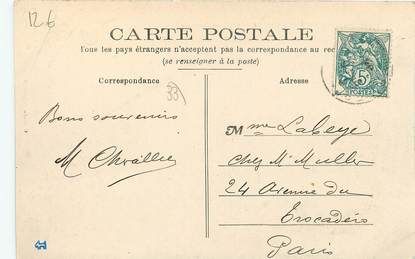 126
CARTE POSTALE
Tous les pays étrangers n'acceptent pas la correspondance au rec
(se renseigner à la poste)
Correspondance
Adresse
5
POSTES
33
Bons souvenirs
M
Mme Labeye
chez Mr Muller
24 Avenue du
Trocadéro
Paris